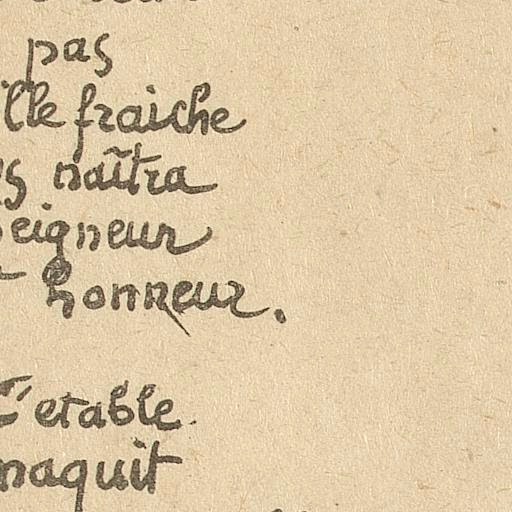 pas
ille fraiche
s naîtra
eigneur
honneur.
l'etable
naquit